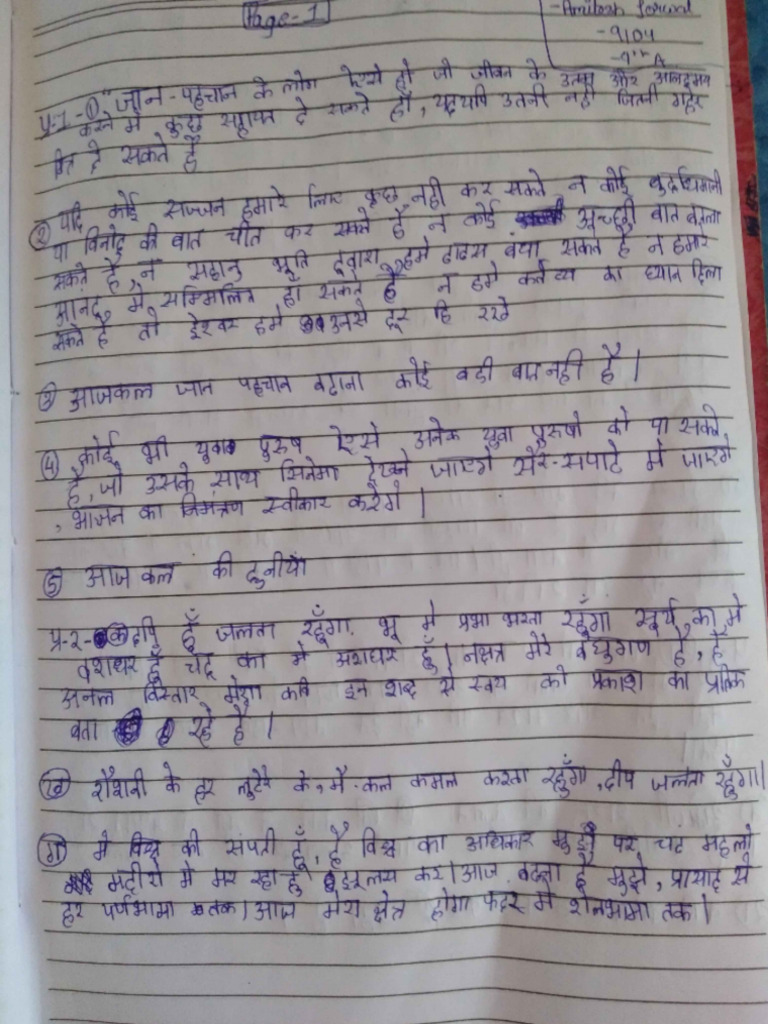 Page-1
- 9104
- 9th A
प्र-1-① "जान-पहचान के लोग ऐसे हो जो जीवन के उत्तम और आनंदमय
करने में कुछ सहायता दे सकते हो, यद्यपि उतनी नही जितनी गहरे
मित्र दे सकते है
② यदि कोई सज्जन हमारे लिए कुछ नही कर सकते न कोई बुद्धिमानी
या विनोद की बात चीत कर सकते हैं न कोई अच्छी बात बतला
सकते है, न सहानुभूति द्वारा हमे ढाढस बंधा सकते है न हमारे
आनंद में सम्मिलित हो सकते है न हमे कर्तव्य का ध्यान दिला
सकते है तो ईश्वर हमे उनसे दूर हि रखे
③ आजकल जान पहचान बढाना कोई बडी बात नही है।
④ कोई भी युवा पुरुष ऐसे अनेक युवा पुरुषो को पा सकते
है, जो उसके साथ सिनेमा देखने जाएगे सैर-सपाटे में जाएगे
, भोजन का निमंत्रण स्वीकार करेगे।
⑤ आज कल की दुनीया
प्र-2- क दीप हूँ जलता रहूँगा भू मे प्रभा भरता रहूँगा सूर्य का मे
वंशधर हूँ चंद्र का मे अंशधर हूँ। नक्षत्र मेरे बंधुगण है, है
अनल विस्तार मेरा कवि इन शब्द से स्वयं को प्रकाश का प्रतिक
बता रहे है।
ख रौशनी के हर लुटेरे के, मै कल कमल करता रहूँगा, दीप जलता रहूँगा।
ग मे विश्व की संपती हूँ, है विश्व का अधिकार मुझ पर चंद महलो
मंदीरो मे मर रहा हूं कर। आज बढना है मुझे, प्रासाद से
हर पर्णभामा तक। आज मेरा क्षेत्र होगा मे शैलभामा तक।